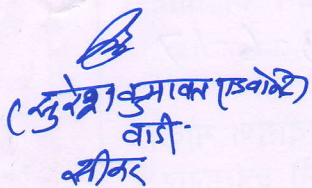 (सुरेश कुमावत एडवोकेट)
वादी
सीकर